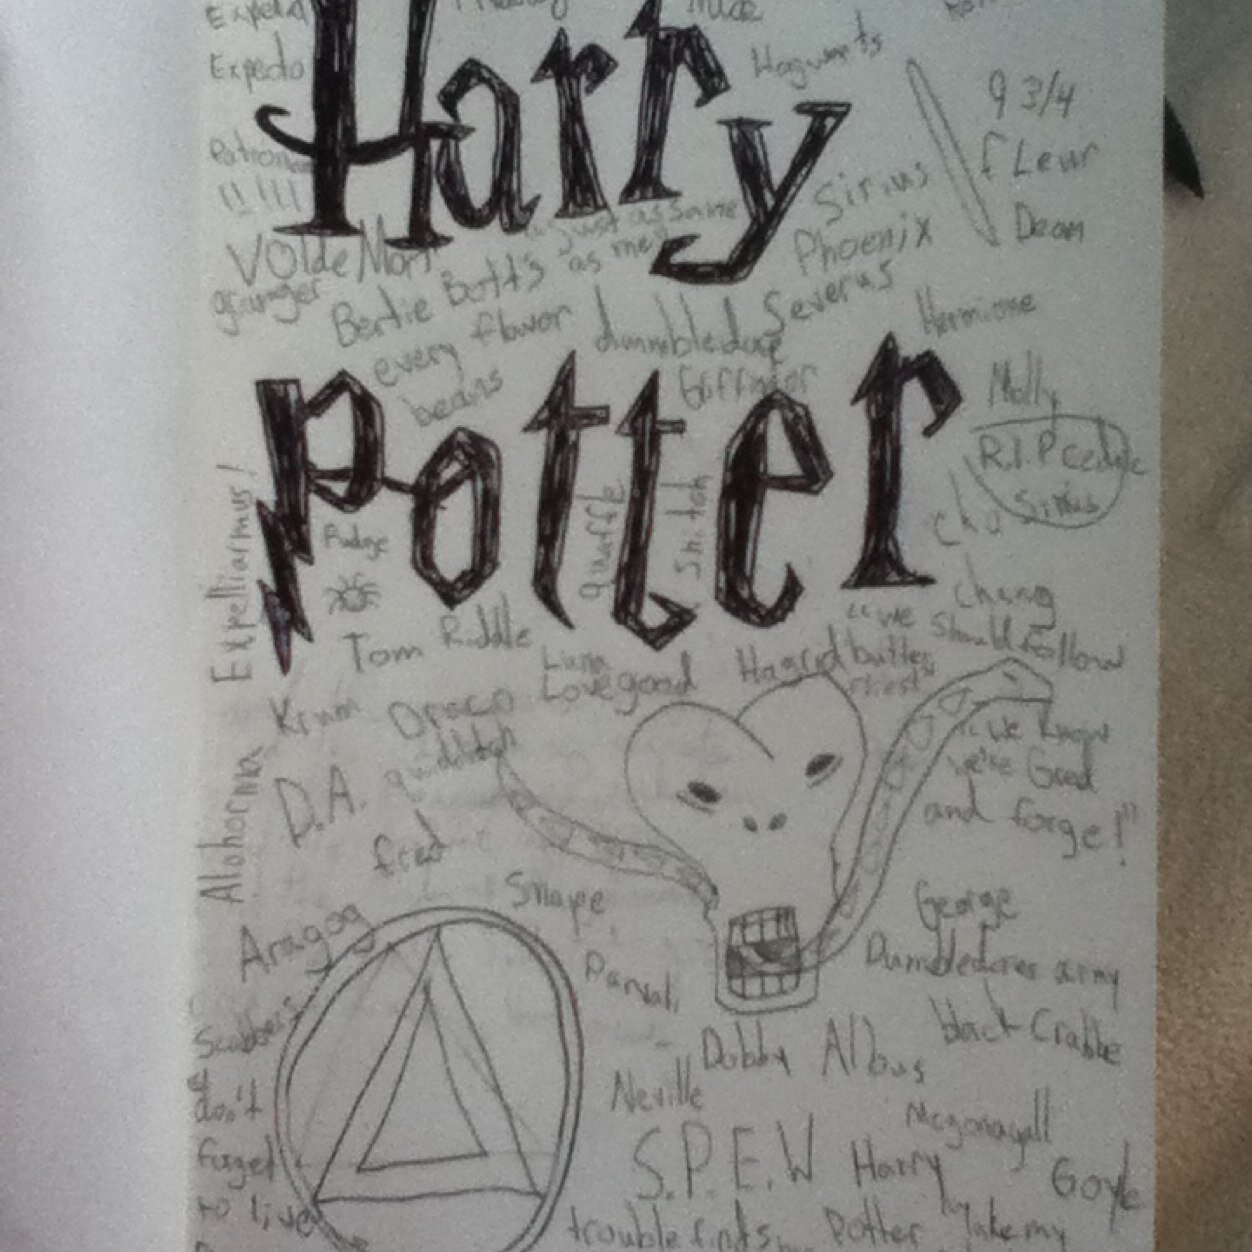 Expecto
Hogwarts
9 3/4
fLeur
Dean
Harry
!!!!!
Sirius
Phoenix
just as sane
as me
VOldeMort
granger
Bertie Bott's
every flavor
beans
dumbledore
Severus
Hermione
Molly
R.I.P Cedric
Sirius
Potter
Cho
Chang
Expelliarmus!
Fudge
quaffle
Snitch
Tom Riddle
Luna
Lovegood
Hagrid
"we should follow
butter
Krum
Draco
quidditch
Alohorma
D.A.
fred
"we know
we're Gred
and forge!"
Snape
George
Aragog
Dumbledores army
Parvati
black
Crabbe
Scabbers
Dobby
Albus
don't
forget
to live
Neville
Mcgonagall
S.P.E.W
Harry
Potter
Goyle
trouble finds